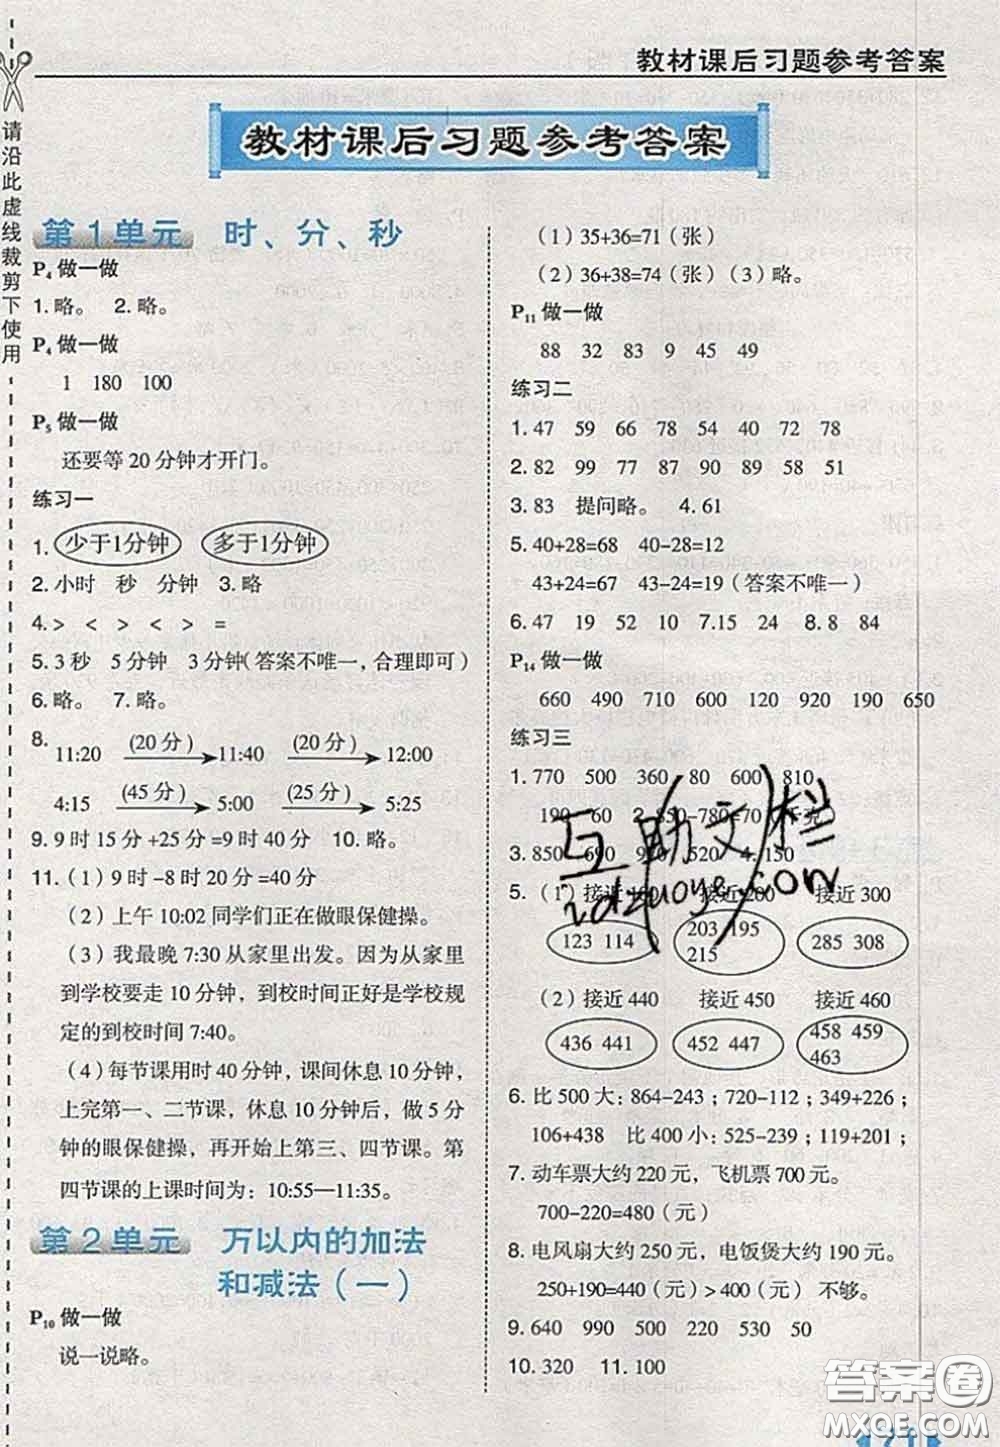 教材课后习题参考答案
请沿此虚线裁剪下使用
教材课后习题参考答案
第1单元 时、分、秒
P4 做一做
1.略。 2.略。
P4 做一做
1 180 100
P5 做一做
还要等20分钟才开门。
练习一
1. 少于1分钟 多于1分钟
2.小时 秒 分钟 3.略
4.> < > < > =
5.3秒 5分钟 3分钟(答案不唯一,合理即可)
6.略。 7.略。
8. 11:20 (20分) 11:40 (20分) 12:00
4:15 (45分) 5:00 (25分) 5:25
9.9时15分+25分=9时40分 10.略。
11.(1)9时-8时20分=40分
(2)上午10:02同学们正在做眼保健操。
(3)我最晚7:30从家里出发。因为从家里
到学校要走10分钟,到校时间正好是学校规
定的到校时间7:40。
(4)每节课用时40分钟,课间休息10分钟,
上完第一、二节课,休息10分钟后,做5分
钟的眼保健操,再开始上第三、四节课。第
四节课的上课时间为:10:55—11:35。
第2单元 万以内的加法
和减法(一)
P10 做一做
说一说略。
(1)35+36=71(张)
(2)36+38=74(张)(3)略。
P11 做一做
88 32 83 9 45 49
练习二
1.47 59 66 78 54 48 72 78
2.82 99 77 80 90 89 58 51
3.83 提问略。 4.61
5.40+28=68 40-28=12
43+24=67 43-24=19(答案不唯一)
6.47 19 52 10 7.15 24 8.8 84
P14 做一做
660 490 710 600 120 920 190 650
练习三
1.770 500 360 80 600 810
190 60 2.850-780=70(千克)
3.850 690 920 520 4.150
5.(1)接近100 接近200 接近300
123 114 203 195 215 285 308
(2)接近440 接近450 接近460
436 441 452 447 458 459 463
6.比500大:864-243;720-112;349+226;
106+438 比400小:525-239;119+201;
7.动车票大约220元,飞机票700元。
700-220=480(元)
8.电风扇大约250元,电饭煲大约190元。
250+190=440(元)>400(元) 不够。
9.640 990 500 220 530 50
10.320 11.100
互助文档
答案圈
MXQE.COM
171